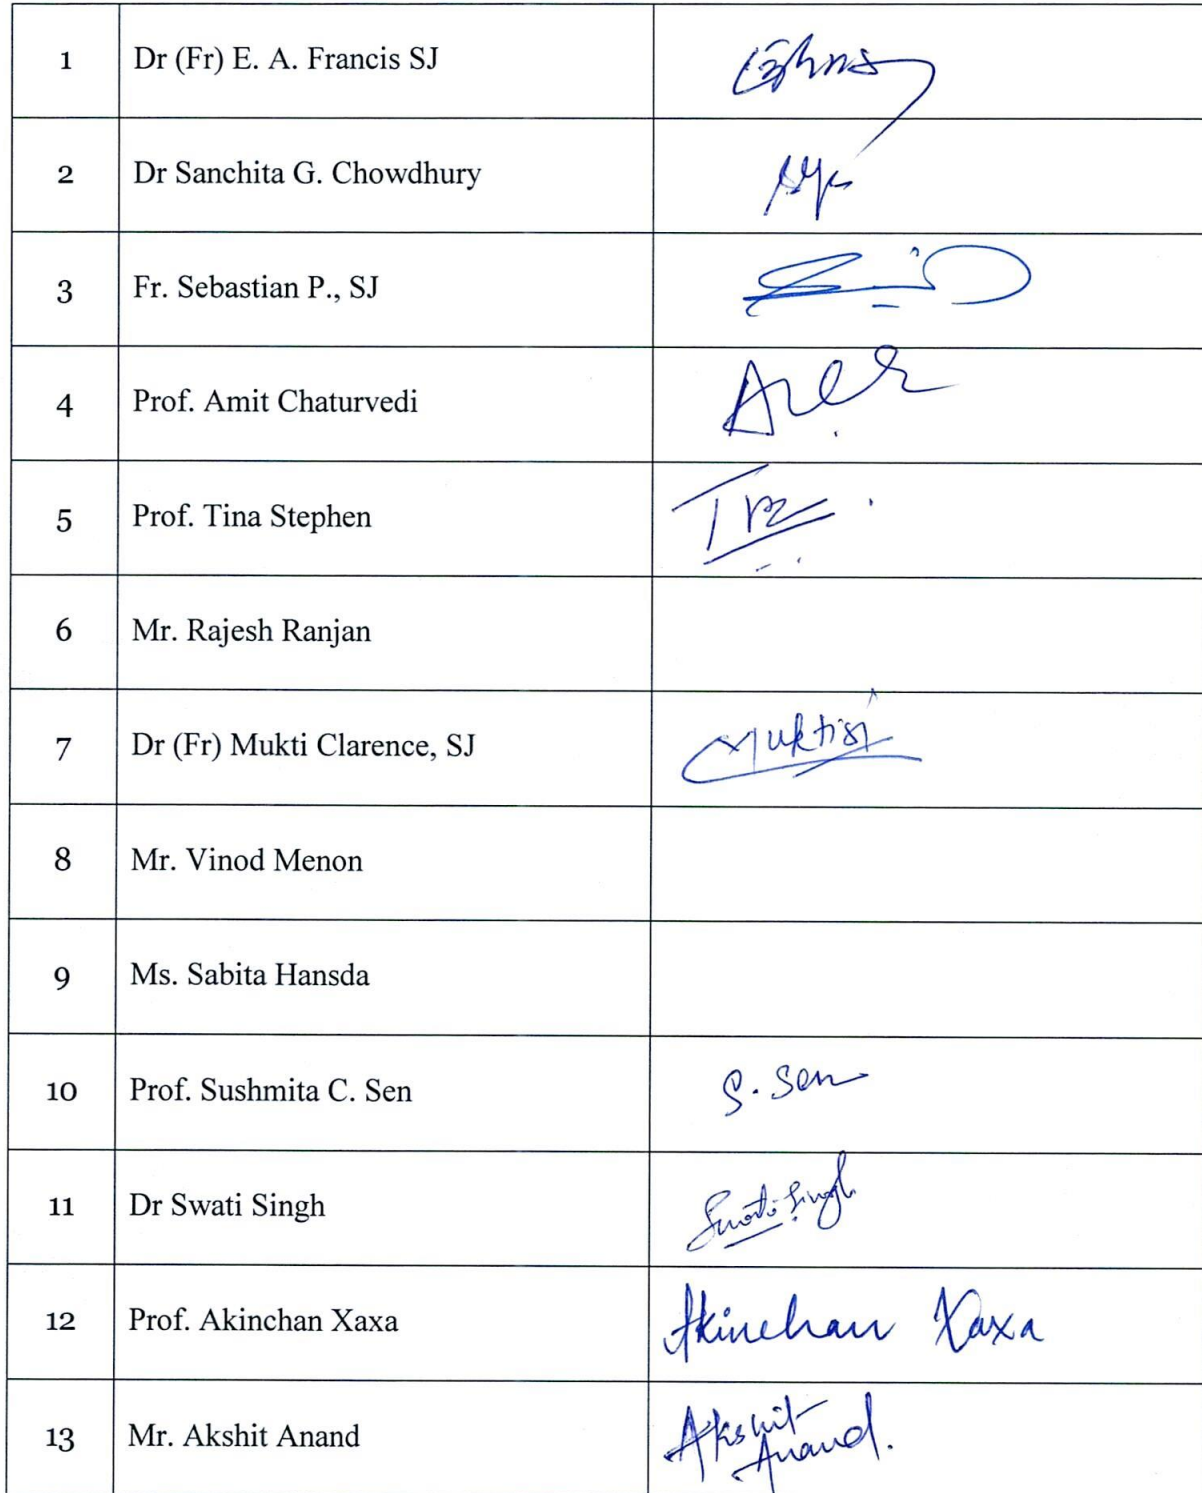 1 Dr (Fr) E. A. Francis SJ
2 Dr Sanchita G. Chowdhury
3 Fr. Sebastian P., SJ
4 Prof. Amit Chaturvedi
5 Prof. Tina Stephen
6 Mr. Rajesh Ranjan
7 Dr (Fr) Mukti Clarence, SJ
8 Mr. Vinod Menon
9 Ms. Sabita Hansda
10 Prof. Sushmita C. Sen S. Sen
11 Dr Swati Singh Swati Singh
12 Prof. Akinchan Xaxa Akinchan Xaxa
13 Mr. Akshit Anand Akshit
Anand.